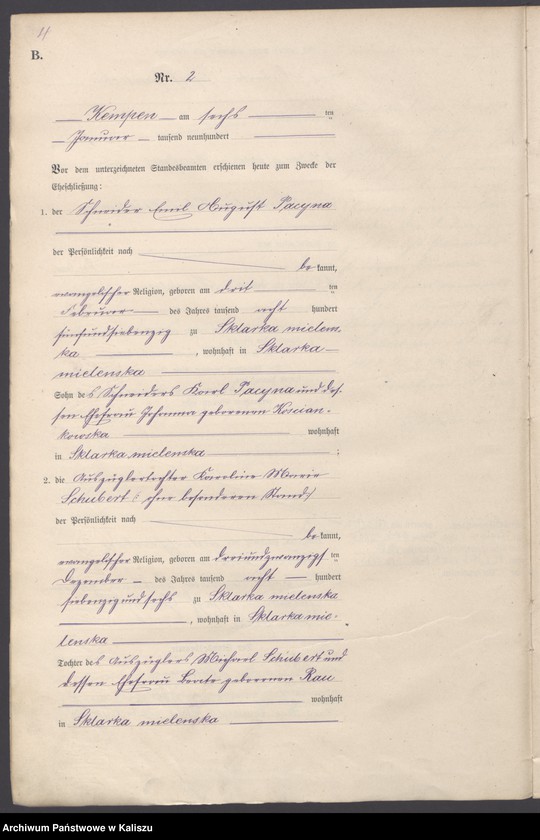 11
B.
Nr. 2
Kempen am sechs ten
Januar tausend neunhundert
Vor dem unterzeichneten Standesbeamten erschienen heute zum Zwecke der
Eheschließung:
1. der Schneider Emil August Pacyna
der Persönlichkeit nach
be kannt,
evangelischer Religion, geboren am drit ten
Februar des Jahres tausend acht hundert
fünfundsiebenzig zu Sklarka mielens
ka , wohnhaft in Sklarka
mielenska
Sohn des Schneiders Karl Pacyna und des-
sen Ehefrau Johanna geborenen Koscian-
kowska wohnhaft
in Sklarka mielenska ;
2. die Auszüglertochter Karoline Marie
Schubert : ohne besonderen Stand/
der Persönlichkeit nach
be kannt,
evangelischer Religion, geboren am dreiundzwanzigs ten
Dezember des Jahres tausend acht hundert
siebenzig und sechs zu Sklarka mielenska
, wohnhaft in Sklarka mie-
lenska
Tochter des Auszüglers Michael Schubert und
dessen Ehefrau Beate geborenen Rau
wohnhaft
in Sklarka mielenska
Archiwum Państwowe w Kaliszu